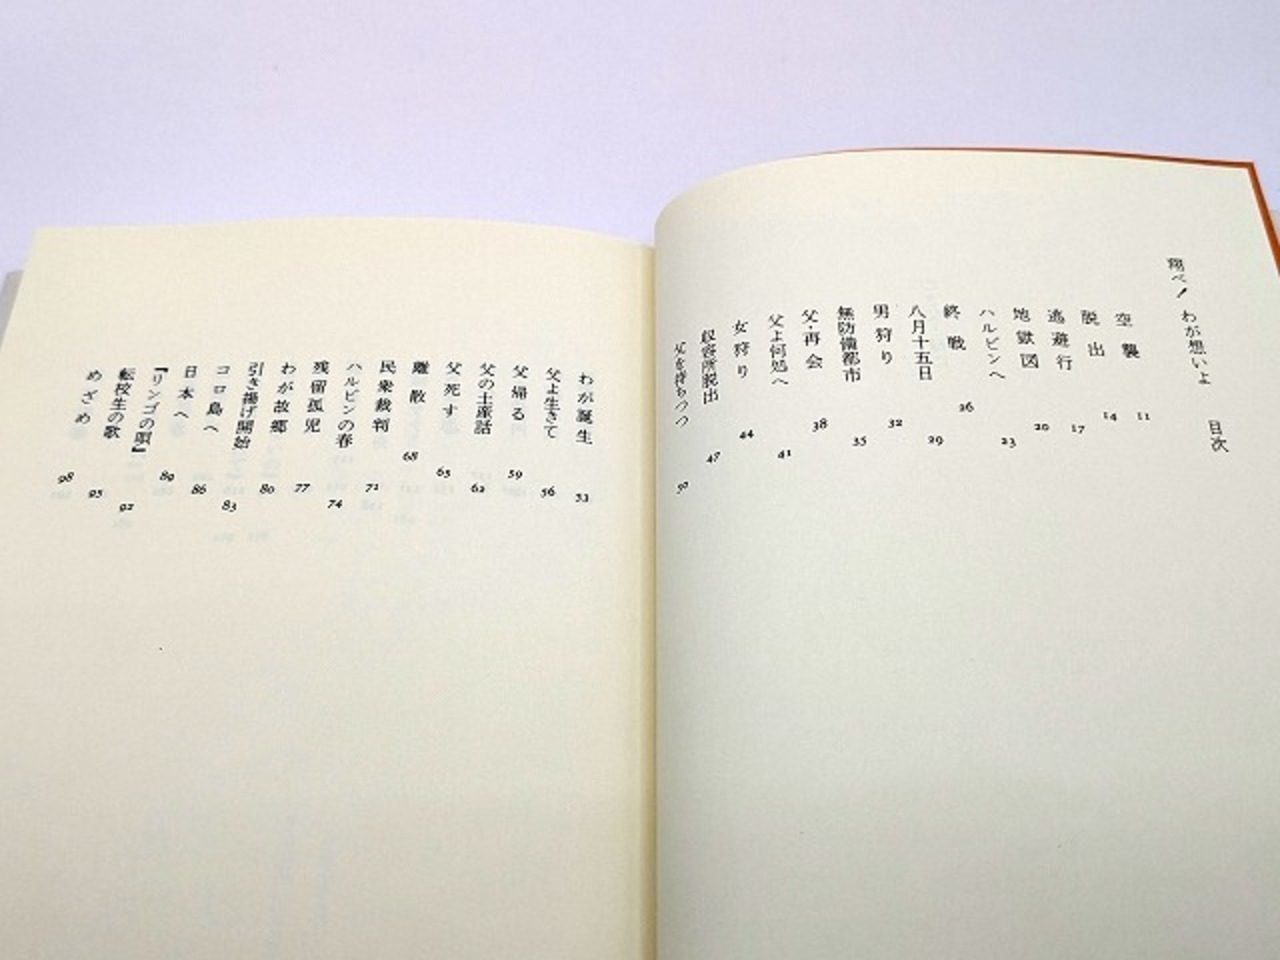 翔べ！わが想いよ　目次
空襲　11
脱出　14
逃避行　17
地獄図　20
ハルビンへ　23
終戦　26
八月十五日　29
男狩り　32
無防備都市　35
父・再会　38
父よ何処へ　41
女狩り　44
収容所脱出　47
父を待ちつつ　50
わが誕生　53
父よ生きて　56
父帰る　59
父の土産話　62
父死す　65
離散　68
民衆裁判　71
ハルビンの春　74
残留孤児　77
わが故郷　80
引き揚げ開始　83
コロ島へ　86
日本へ　89
『リンゴの唄』　92
転校生の歌　95
めざめ　98